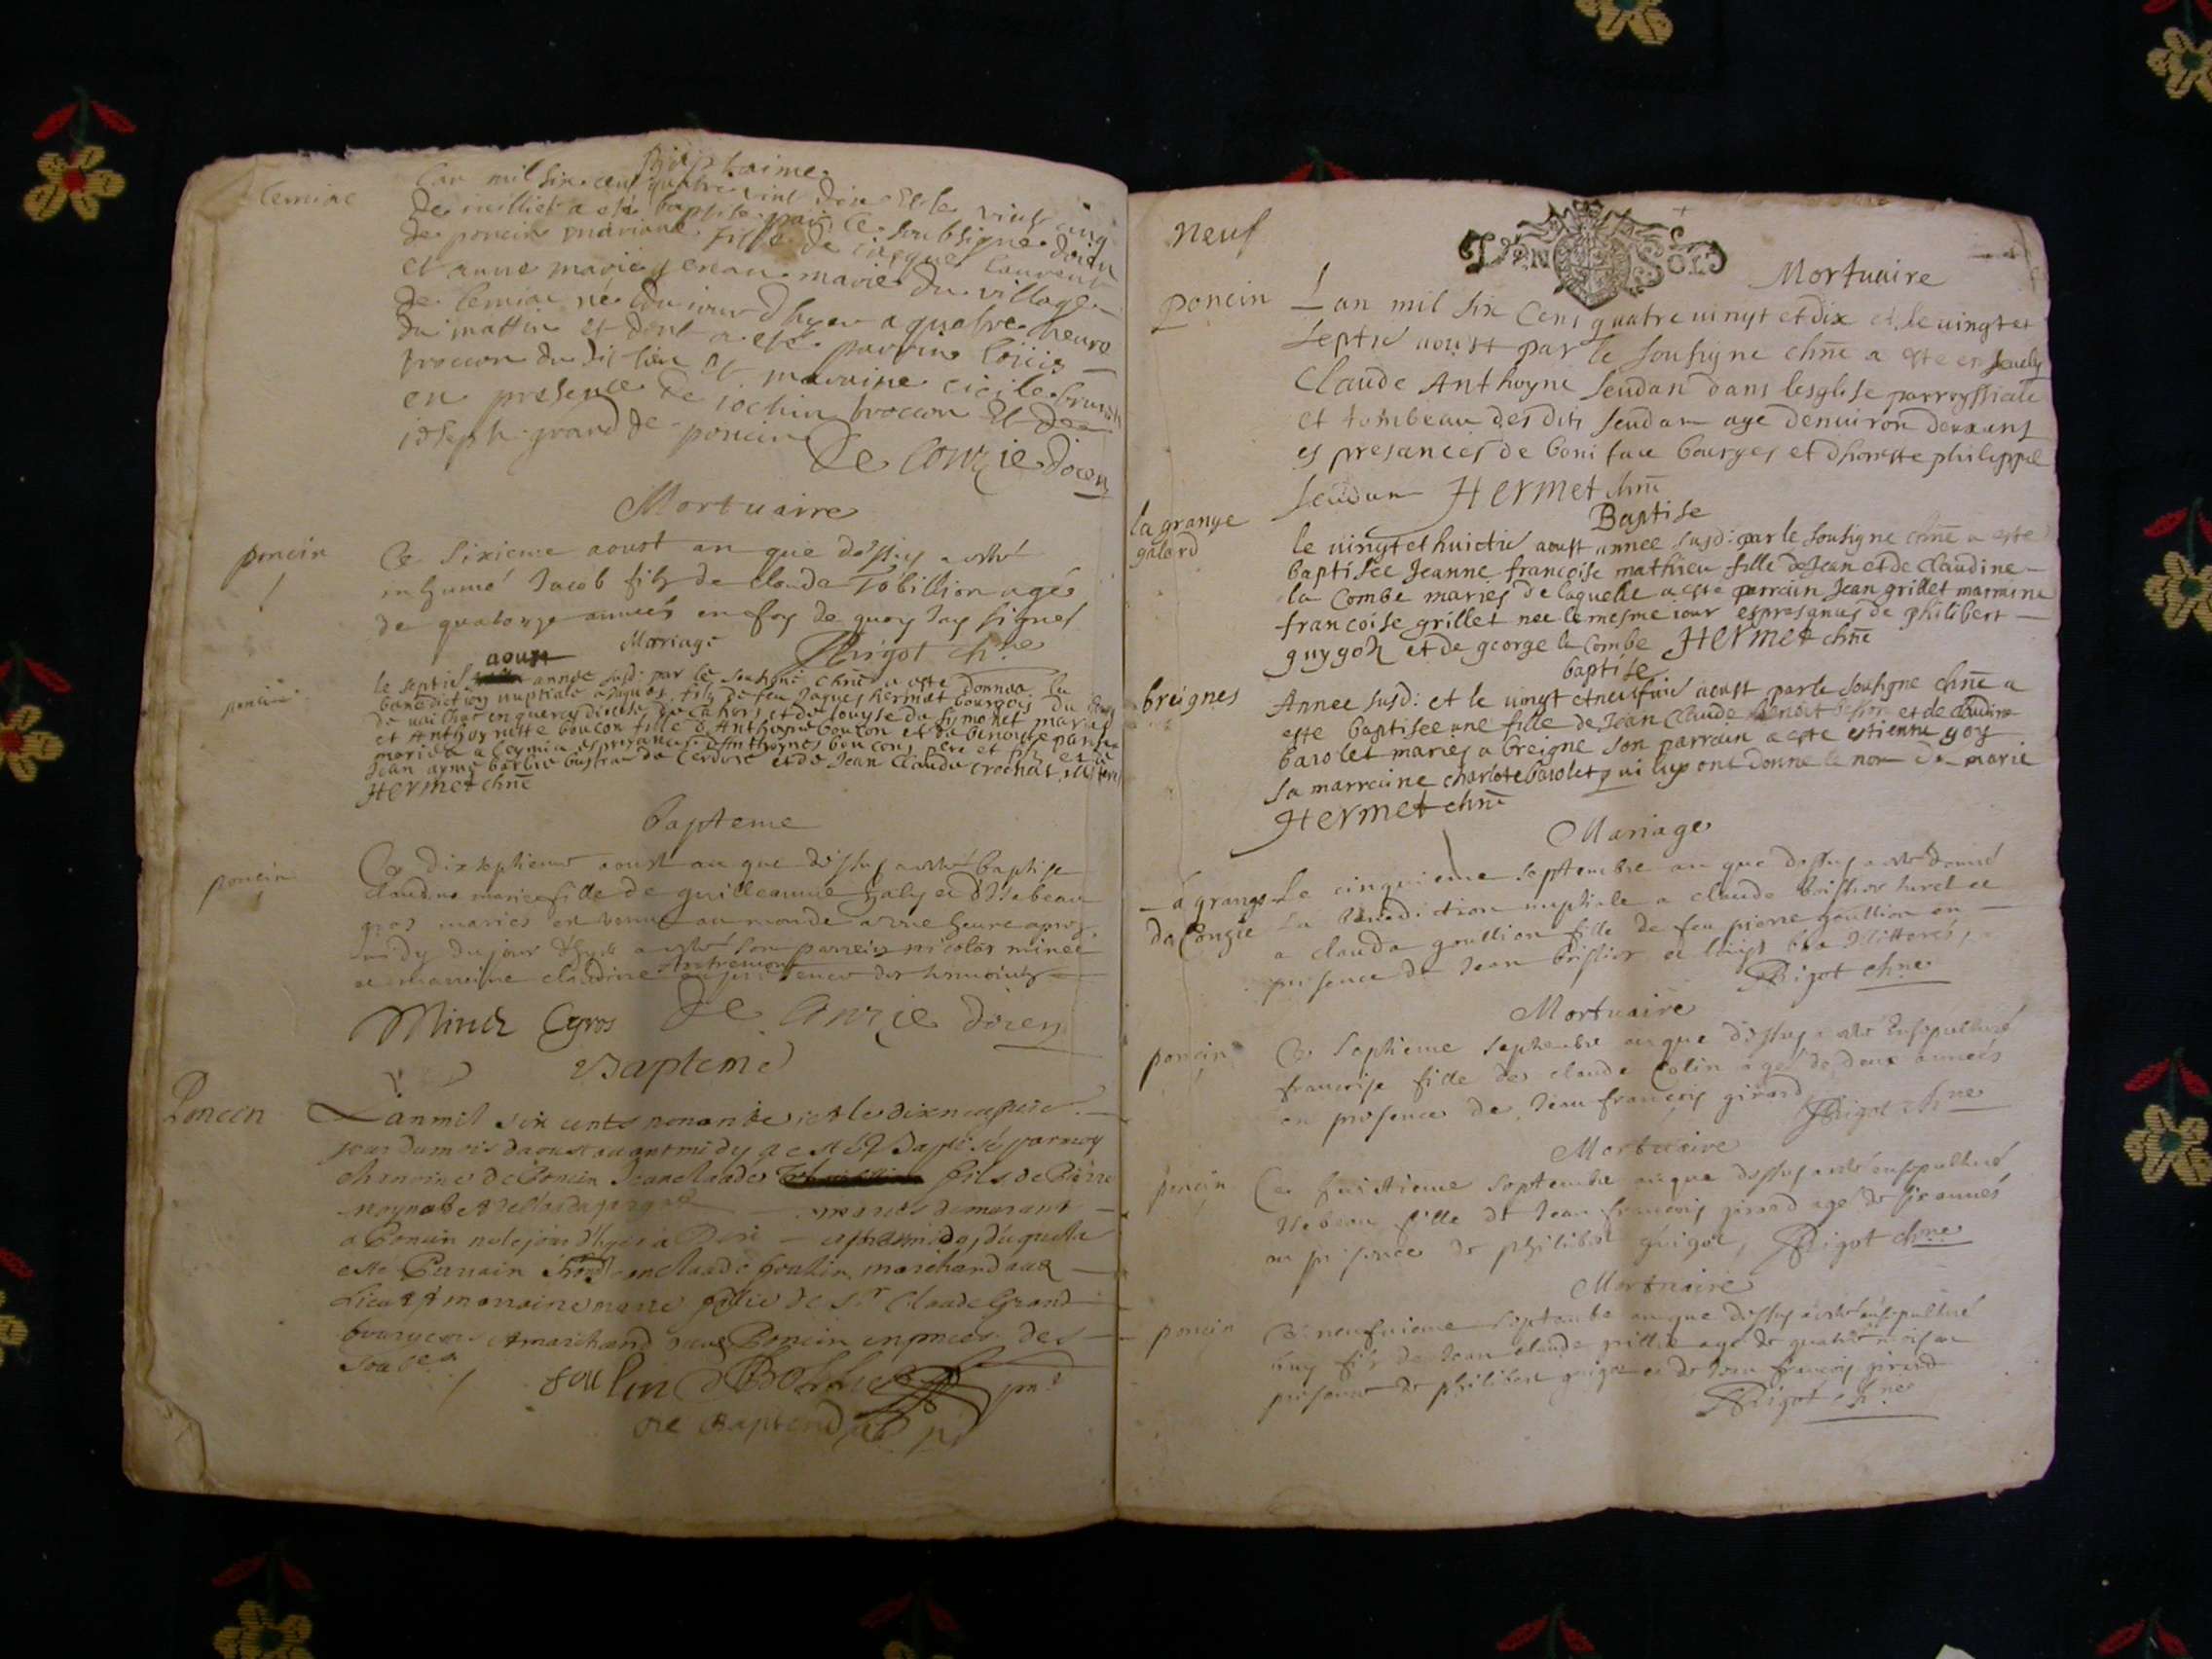 Baptaime
Lemiac
Lan mil six cent quatre vint dix et le vint cinq
de juilliet a esté baptisé par ce soubsigné doien
de poncin mariane fille de jacque laurent
et anne marie jeneau mariés du village
de lemiac né du jour dhyer a quatre heure
du mattin et dont a esté parrin loüis
broccon du dit lieu et marraine cicile
en presence de jochin broccon et de
joseph grand de poncin
De Conzie doien
Mortuaire
poncin
Ce sixieme aoust an que dessus a esté
inhumé Jacob fils de claude Tobillion agé
de quatorze années en foy de quoy jay signé
Rigot chne
Mariage
poncin
le septie aoust annee susd: par le sousigné chne a este donnee la
benediction nuptiale a jaques fils de feu Jaques hermet bourgois du
de en quercy diocese de Cahors et de louyse de symonet maries
et Anthoynette boucon fille d'Anthoyne boucon et de benoite
mariés a Ceymia es presances d'Anthoynes boucons pere et fils et de
Jean aymé barbie de Cerdone et de Jean Claude crochat
Hermet chne
bapteme
poncin
Ce dixseptieme aoust an que dessus a esté baptise
claudine marie fille de guilleaume galy et d'Isabeau
gros mariés et venue au monde a une heure apres
midy du jour dhyer a esté son parrein nicolas minei
et marreine claudine Antremont en presence des temoints
Minei Cgros De Conzie doien
Bapteme
Poncin
Lan mil six cents nonante et le dixneufuie
jour du mois daoust auant midy a esté Baptisé par moy
chanoine de Poncin Jean claude fils de Pierre
mariés demeurant
a Poncin né le jour dhyer a apres midy, duquel a
esté Parrain hond Jean claude foulin marchand aud
Lieu et marraine marie fillie de Sr Claude Grand
bourgeois et marchand aud Poncin en pnces des
soubz
foulin
Neuf
DEN SOLS
Mortuaire
poncin
Lan mil six Cens quatre uingt et dix et le uingt et
septie aoust par le sousigne chne a este enseuely
Claude Anthoyne seudan dans lesglise parroyssiale
et tombeau des dits seudan age denuiron deux ans
es presances de boniface bourges et dhoneste philippe
seudan Hermet chne
Baptise
la grange
galard
le uingt et huictie aoust annee susd: par le sousigne chne a este
baptisee Jeanne francoise mathieu fille de Jean et de Claudine
la Combe maries de laquelle a este parrain Jean grillet marraine
francoise grillet nee le mesme iour es presances de philibert
guygon et de george la Combe Hermet chne
baptise
breignes
Annee susd: et le uingt et neufuie aoust par le sousigne chne a
este baptisee une fille de Jean Claude benoit et de claudine
barolet maries a breigne son parrain a este estienne goy
sa marraine charlote barolet qui luy ont donne le nom de marie
Hermet chne
Mariage
La grange
de Conzie
Le cinquieme septembre an que dessus a esté donné
la benediction nuptiale a claude
a clauda goullion fille de feu pierre goullion en
presence de Jean et loüis illitterés
Rigot chne
Mortuaire
poncin
Ce septieme septembre an que dessus a esté ensepulturé
francoise fille de claude Colin agé de deux années
en presence de Jean francois girard Rigot chne
Mortuaire
poncin
Ce huictieme septembre an que dessus a esté ensepulturé
Isabeau fille de Jean francois girard agé de six années
en presence de philibert guigot, Rigot chne
Mortuaire
poncin
Ce neufuieme septembre an que dessus a esté ensepulturé
fils de Jean claude agé de quatre mois en
presence de philibert guigot et de Jean francois girard
Rigot chne